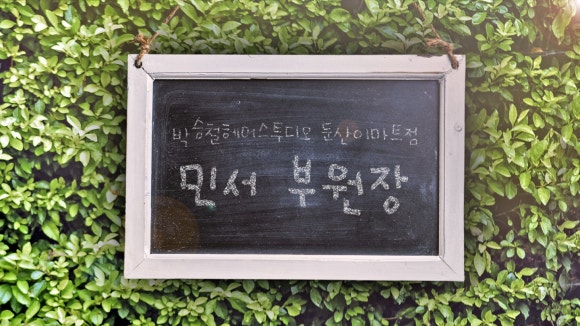 박승철헤어스튜디오 둔산이마트점
민서 부원장